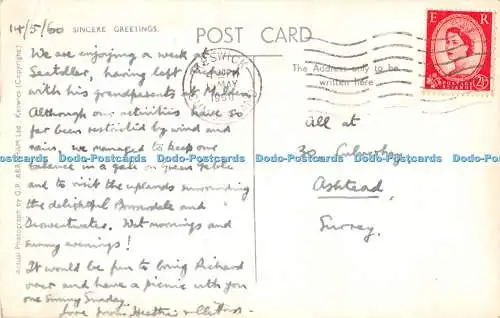 14/5/60 SINCERE GREETINGS.
POST CARD
We are enjoying a week at
Seatoller, having left Richard
with his grandparents at
Although our activities have so
far been restricted by wind and
rain, we managed to keep our
balance in a gale on Great Gable
and to visit the uplands surrounding
the delightful Borrowdale and
Derwentwater. Wet mornings and
sunny evenings!
It would be fun to bring Richard
over and have a picnic with you
one Sunny Sunday.
Love from
KESWICK
MAY
1960
The Address only to be
written here
E R
POSTAGE REVENUE
2½D
All at
30
Ashtead,
Surrey.
Actual Photograph by G.P. ABRAHAM Ltd. Keswick (Copyright)
Dodo-Postcards Dodo-Postcards Dodo-Postcards Dodo-Postcards Dodo-Postcards